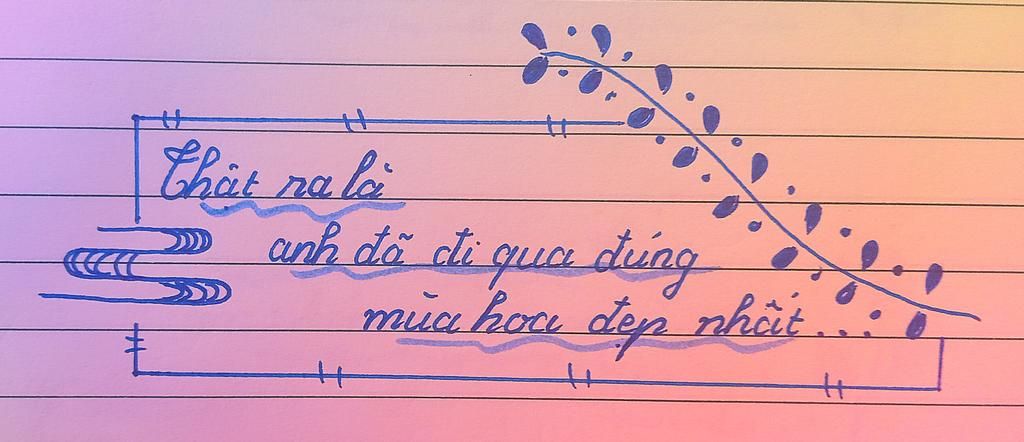 Thật ra là
anh đã đi qua đúng
mùa hoa đẹp nhất...